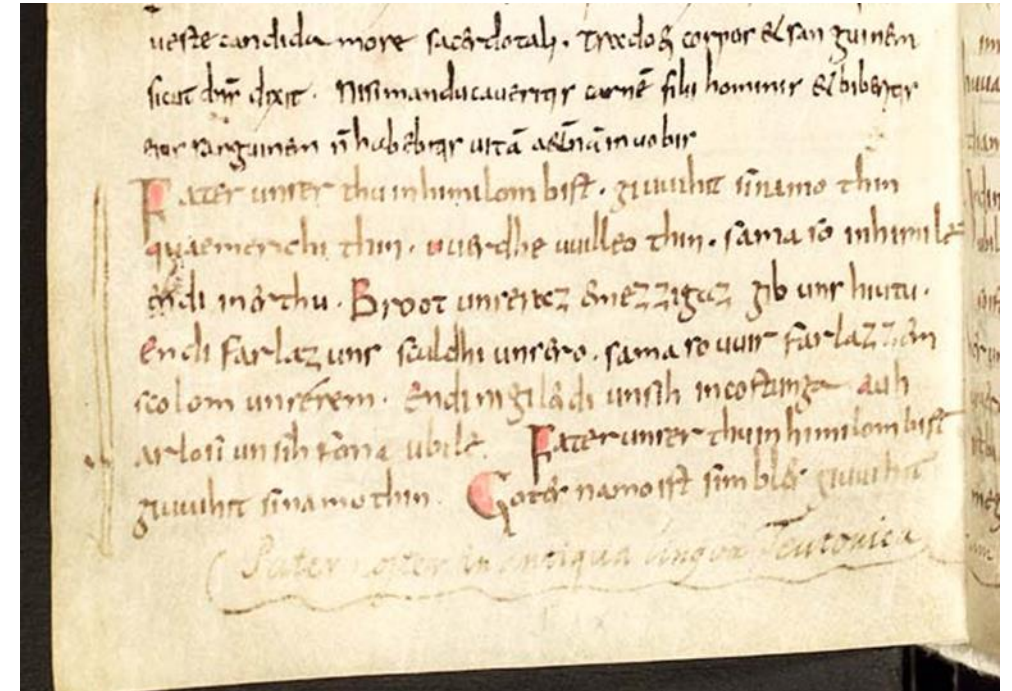 ueste candida more sacerdotali · Trad& corpus & sanguinem
sicut dn̄s dixit · Nisi manducaueritis carnē filii hominis & biberitis
eius sanguinem n̄ habebitis uitā aet̄nā in uobis
Fater unser thu in himilom bist · giuuihit si namo thin
quaeme richi thin · uuerdhe uuilleo thin · sama so in himile
endi in erthu · Broot unseraz emezzigaz gib uns hiutu ·
Endi farlaz uns sculdhi unsero · sama so uuir farlazzem
scolom unserem · Endi ni gileidi unsih in costunga auh
arlosi unsih fona ubile · Fater unser thu in himilom bist
giuuihit si namo thin · Gotes namo ist simbles giuuihit
Pater noster in antiqua lingva Teutonica